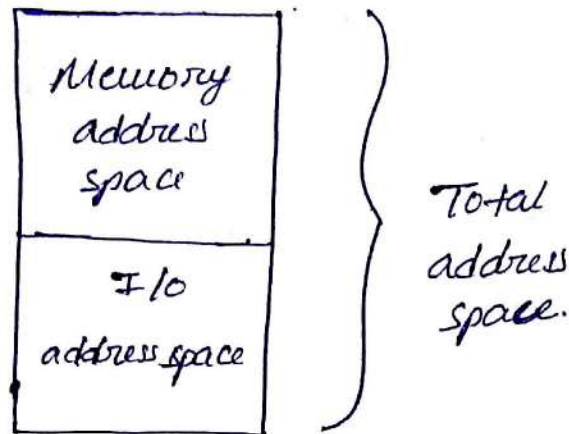 Memory
address
space
I/o
address space
Total
address
space.